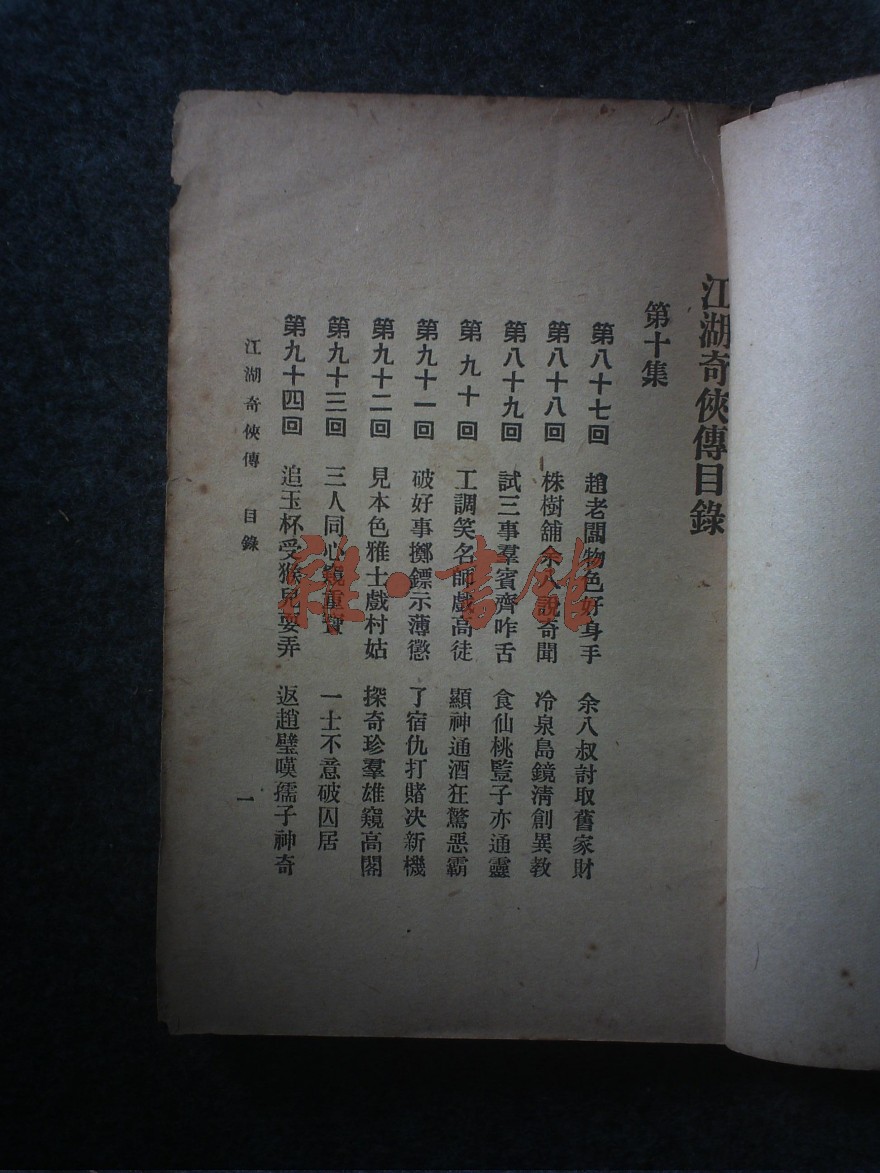 江湖奇俠傳目錄
第十集
第八十七回 趙老闆物色好身手 余八叔討取舊家財
第八十八回 株樹舖余人說奇聞 冷泉島鏡清創異教
第八十九回 試三事羣賓齊咋舌 食仙桃豎子亦通靈
第九十回 工調笑名師戲高徒 顯神通酒狂驚惡霸
第九十一回 破好事擲鏢示薄懲 了宿仇打賭決新機
第九十二回 見本色雅士戲村姑 探奇珍羣雄窺高閣
第九十三回 三人同心窺重寶 一士不意破囚居
第九十四回 追玉杯受猴兒耍弄 返趙璧嘆孺子神奇
江湖奇俠傳 目錄 一
雜·書館